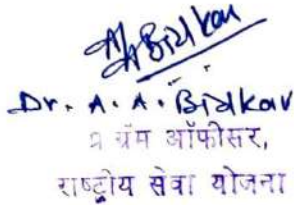 Dr. A. A. Bidkar
प्रोग्रॅम ऑफीसर,
राष्ट्रीय सेवा योजना